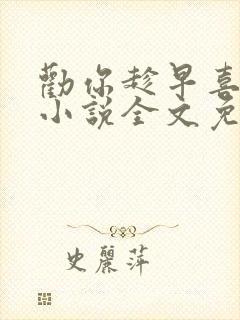 勸你趁早喜
小說全文免
史麗萍